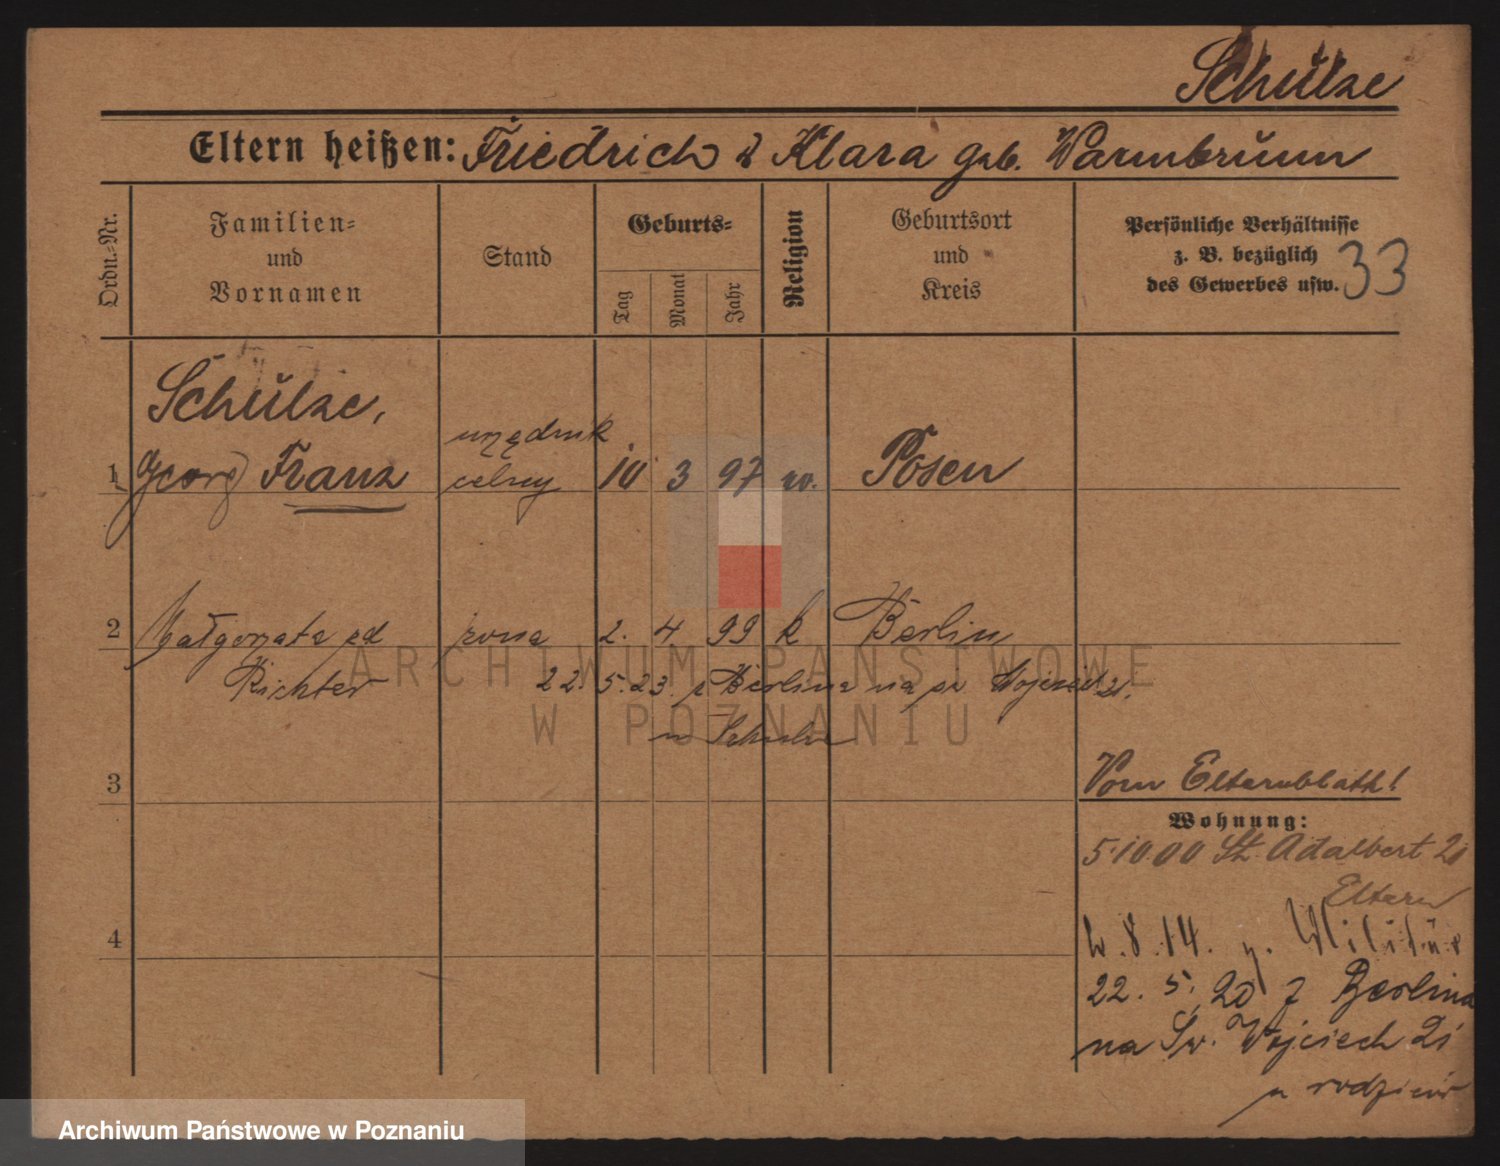 Schulze
Eltern heißen: Friedrich & Klara geb. Warmbrunn
Ordn.-Nr.
Familien-
und
Vornamen
Stand
Geburts-
Tag
Monat
Jahr
Religion
Geburtsort
und
Kreis
Persönliche Verhältnisse
z. B. bezüglich
des Gewerbes usw.
33
Schulze,
1 Georg Franz urzędnik celny 10 3 97 ev. Posen
2 Małgorzata żona 2. 4 99 k Berlin
Richter 22. 5. 23. z Berlina na
u Schulze
3
Vom Elternblatt!
Wohnung:
5.10.00 St. Adalbert 21
Eltern
4
8.14. z. Militär
22. 5. 20 z Berlina
na Św. Wojciech 21
u rodziców
ARCHIWUM PAŃSTWOWE
W POZNANIU
Archiwum Państwowe w Poznaniu